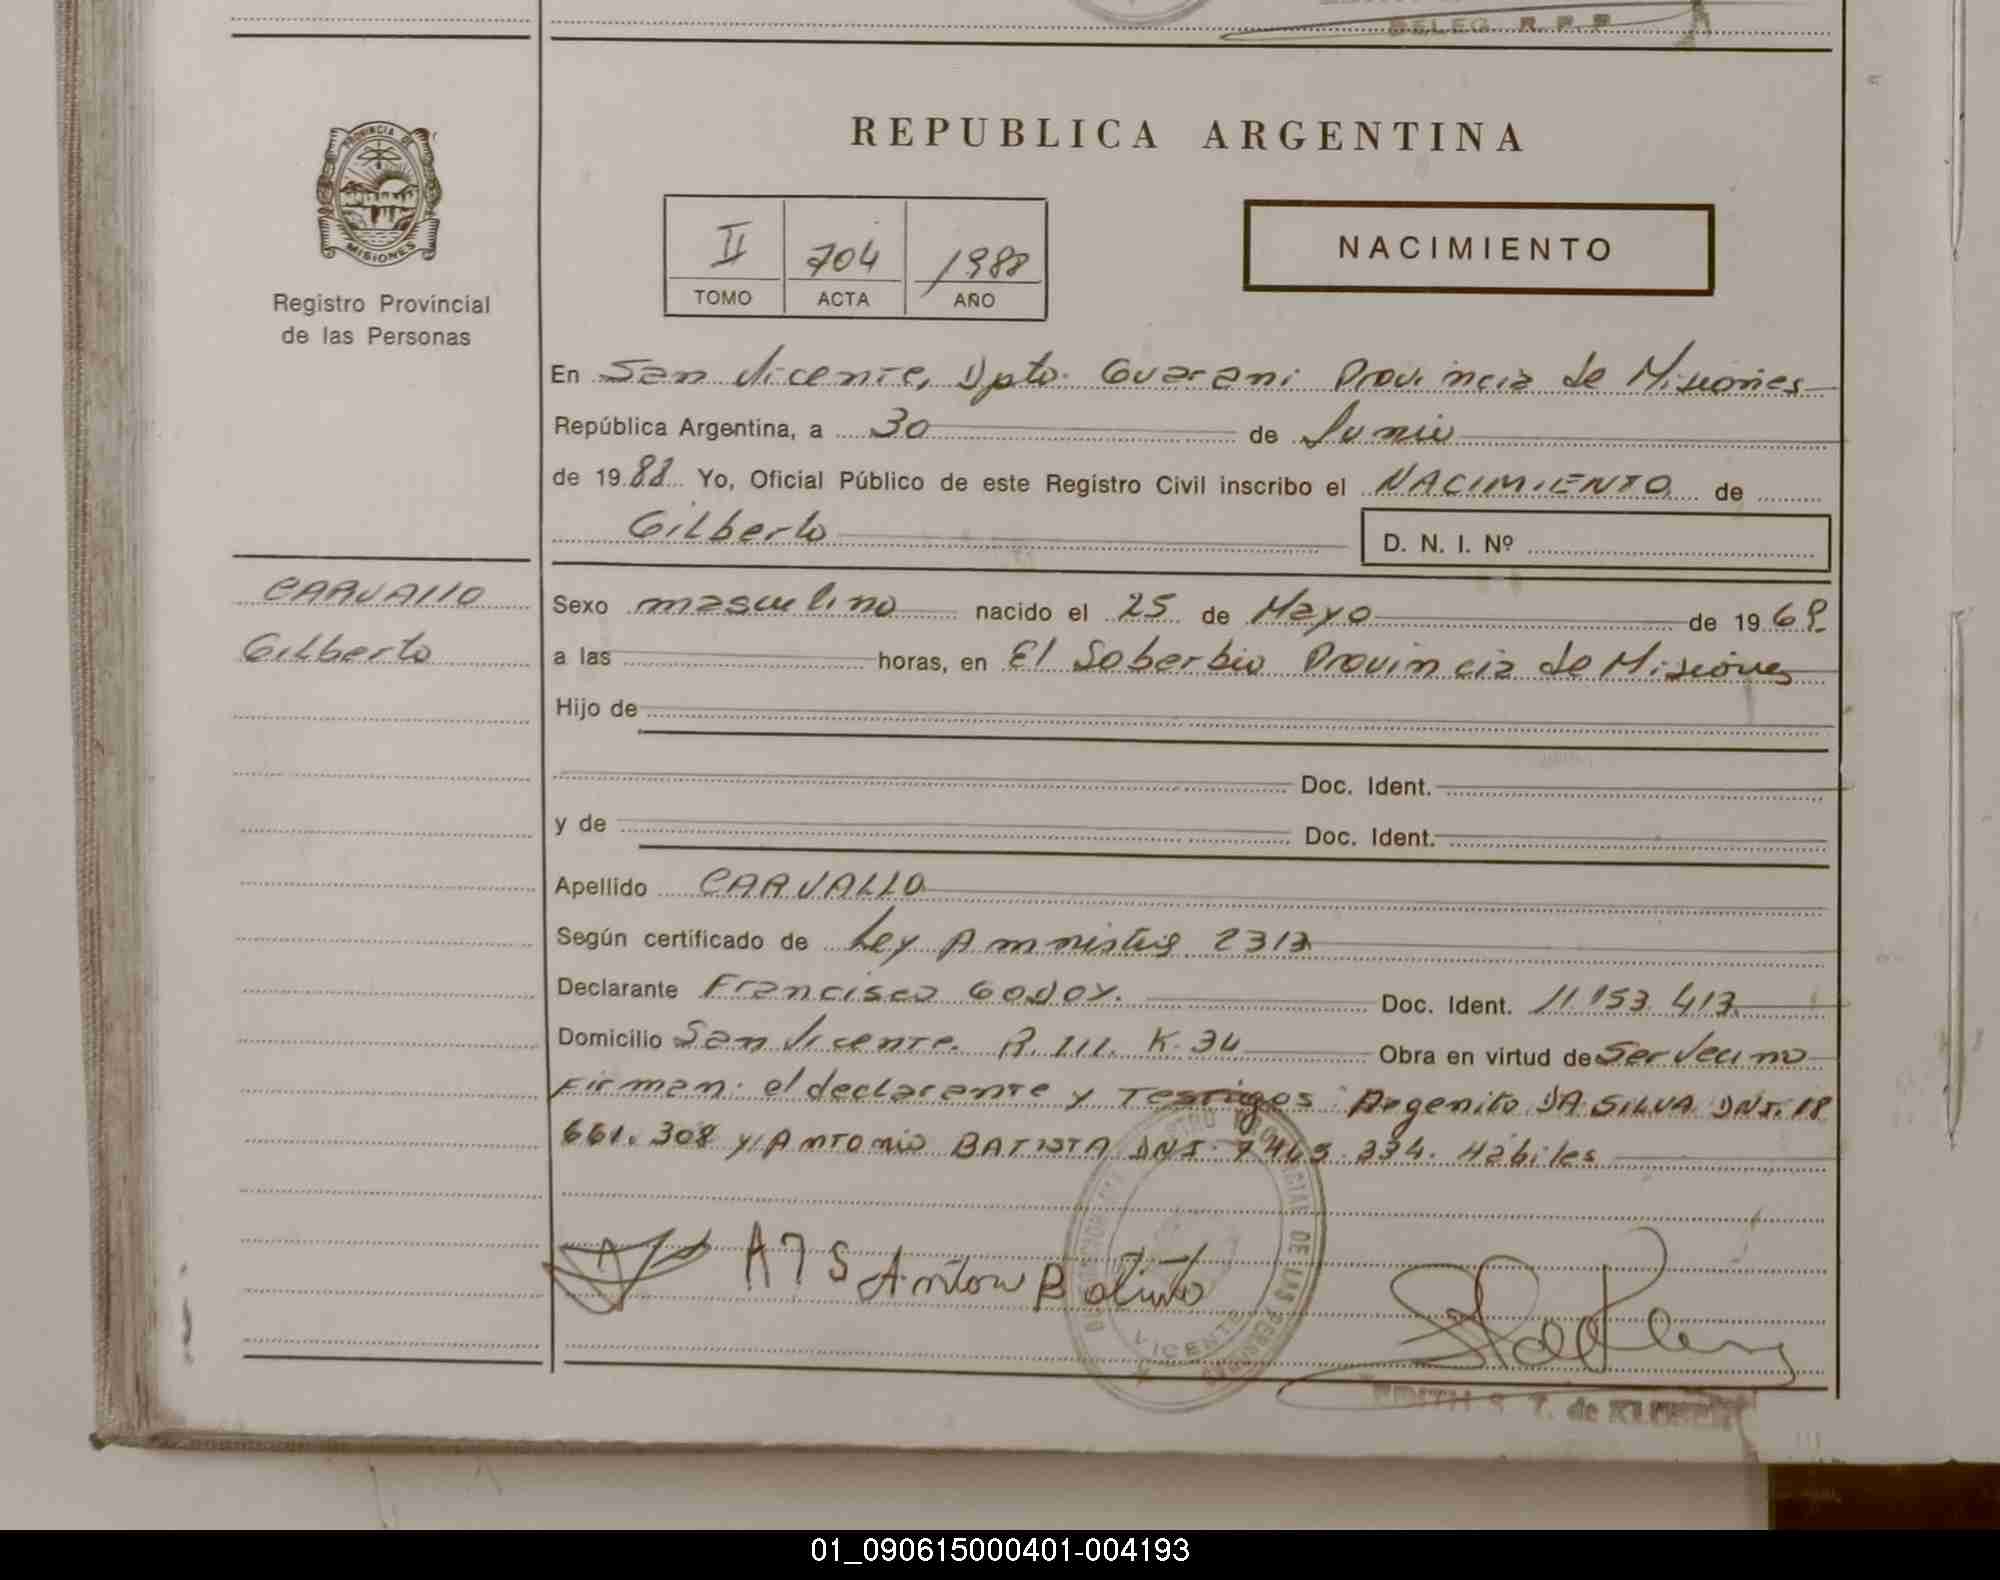 DELEG. R. P. P.
PROVINCIA DE
MISIONES
Registro Provincial
de las Personas
REPUBLICA ARGENTINA
II 704 1988
TOMO ACTA AÑO
NACIMIENTO
En San Vicente, Dpto. Guarani Provincia de Misiones
República Argentina, a 30 de Junio
de 1988 Yo, Oficial Público de este Registro Civil inscribo el NACIMIENTO de
Gilberto D. N. I. Nº
CARVALLO
Gilberto
Sexo masculino nacido el 25 de Mayo de 1969
a las horas, en El Soberbio Provincia de Misiones
Hijo de
Doc. Ident.
y de Doc. Ident.
Apellido CARVALLO
Según certificado de Ley Amnistia
Declarante Francisco GODOY. Doc. Ident. 11.153.413
Domicilio San Vicente. R. III. K. 34 Obra en virtud de Ser Vecino
Firman: el declarante y Testigos: Argenito DA SILVA DNI. 18
661.308 y Antonio BATISTA DNI. 7.465.334. Hábiles
A T S Antonio Batista
VICENTE
DE LAS PERSONAS
EDITH S. T. de
01_090615000401-004193